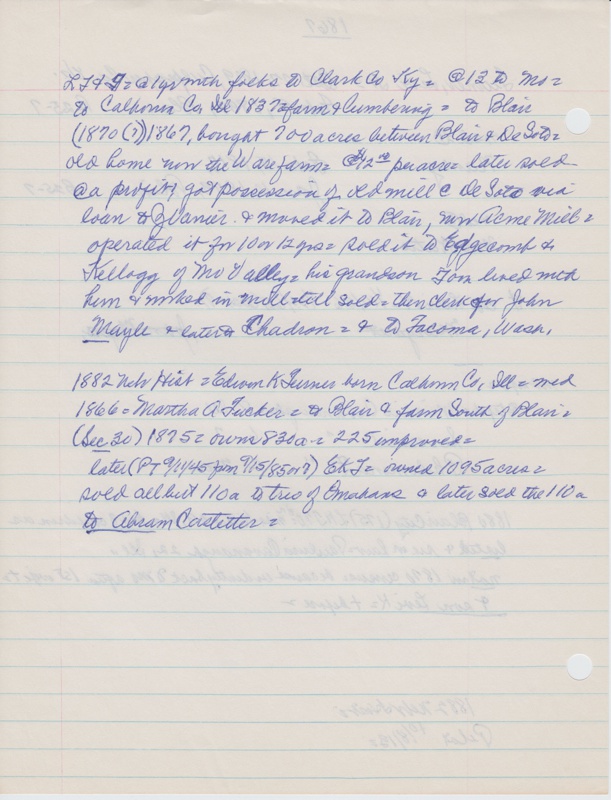 L T & J = @ 1 yr with folks to Clark Co Ky = @ 12 to Mo =
to Calhoun Co, Ill 1837 = farm & lumbering = to Blair
(1870 (?)) 1867, bought 700 acres between Blair & De Soto =
old home now the Ware farm = $12 00 per acre = later sold
@ a profit, got possession of old mill @ De Soto via
loan to & moved it to Blair, now Acme Mill =
operated it for 10 or 12 yrs = sold it to Edgecomb &
Kellogg of Mo Valley = his grandson Tom lived with
him & worked in mill till sold = then clerk for John
Mayle & later to Chadron = & to Tacoma, Wash.
1882 Neb Hist = Edwin K Turner born Calhoun Co, Ill = md
1866 = Martha A Tucker = to Blair & farm South of Blair =
(Sec 30) 1875 = owns 830 a = 225 improved =
later (PT 9/11/45 from 9/15/85 n 7) EKT = owned 1095 acres =
sold all but 110 a to trio of Omahans & later sold the 110 a
to Abram Castetter =